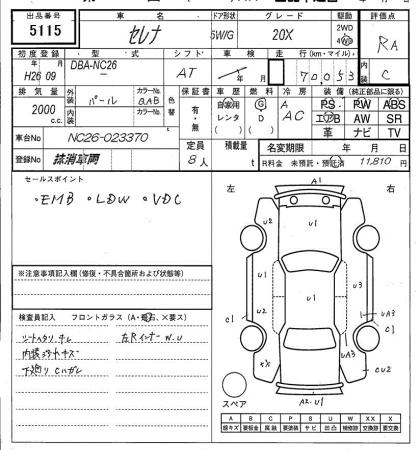 出品番号 車名 ドア形状 グレード 駆動 評価点
5115 セレナ 5W/G 20X 2WD 4WD RA
初度登録 型式 シフト 車検 走行(km・マイル)
H26 09 DBA-NC26 AT 年 月 70,053 C
排気量 外装 カラーNo. 色替 保証書 車歴 燃料 冷房 装備(純正部品に限る)
2000 c.c. パール QAB 有・無 自家用 レンタ G D A AC PS PW ABS
内装 カラーNo. エアB AW SR
革 ナビ TV
車台No NC26-023370 定員 8人 積載量 t 名変期限 年 月 日
登録No 抹消車両 R料金 未預託・預託済 11,810 円
セールスポイント
・EMB ・LDW ・VDC
※注意事項記入欄(修復・不具合箇所および状態等)
検査員記入 フロントガラス(A・飛石・×要ス)
シートヘタリ キレ 左Rインナー W.U
内装コゲ キズ
下廻り Cハガレ
左 右
A1
U2 U1
U1 U1 U3
U2 C1 1 UA3 C1
XX UA3 CU2
A2.U1
スペア
A B C P S U W XX X
線キズ 要板金 腐蝕 要塗装 サビ 凹凸 補修跡 交換跡 要交換